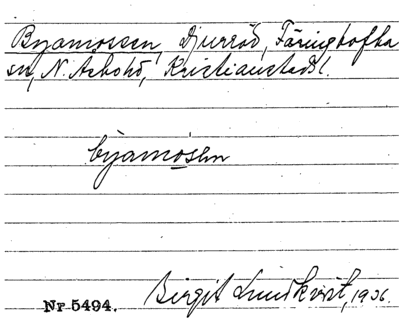 Byamossen, Djurröd, Färingtofta
sn, N. Åsbohd, Kristianstads l.
byamosen
Nr 5494. Birgit Lindkvist, 1936.